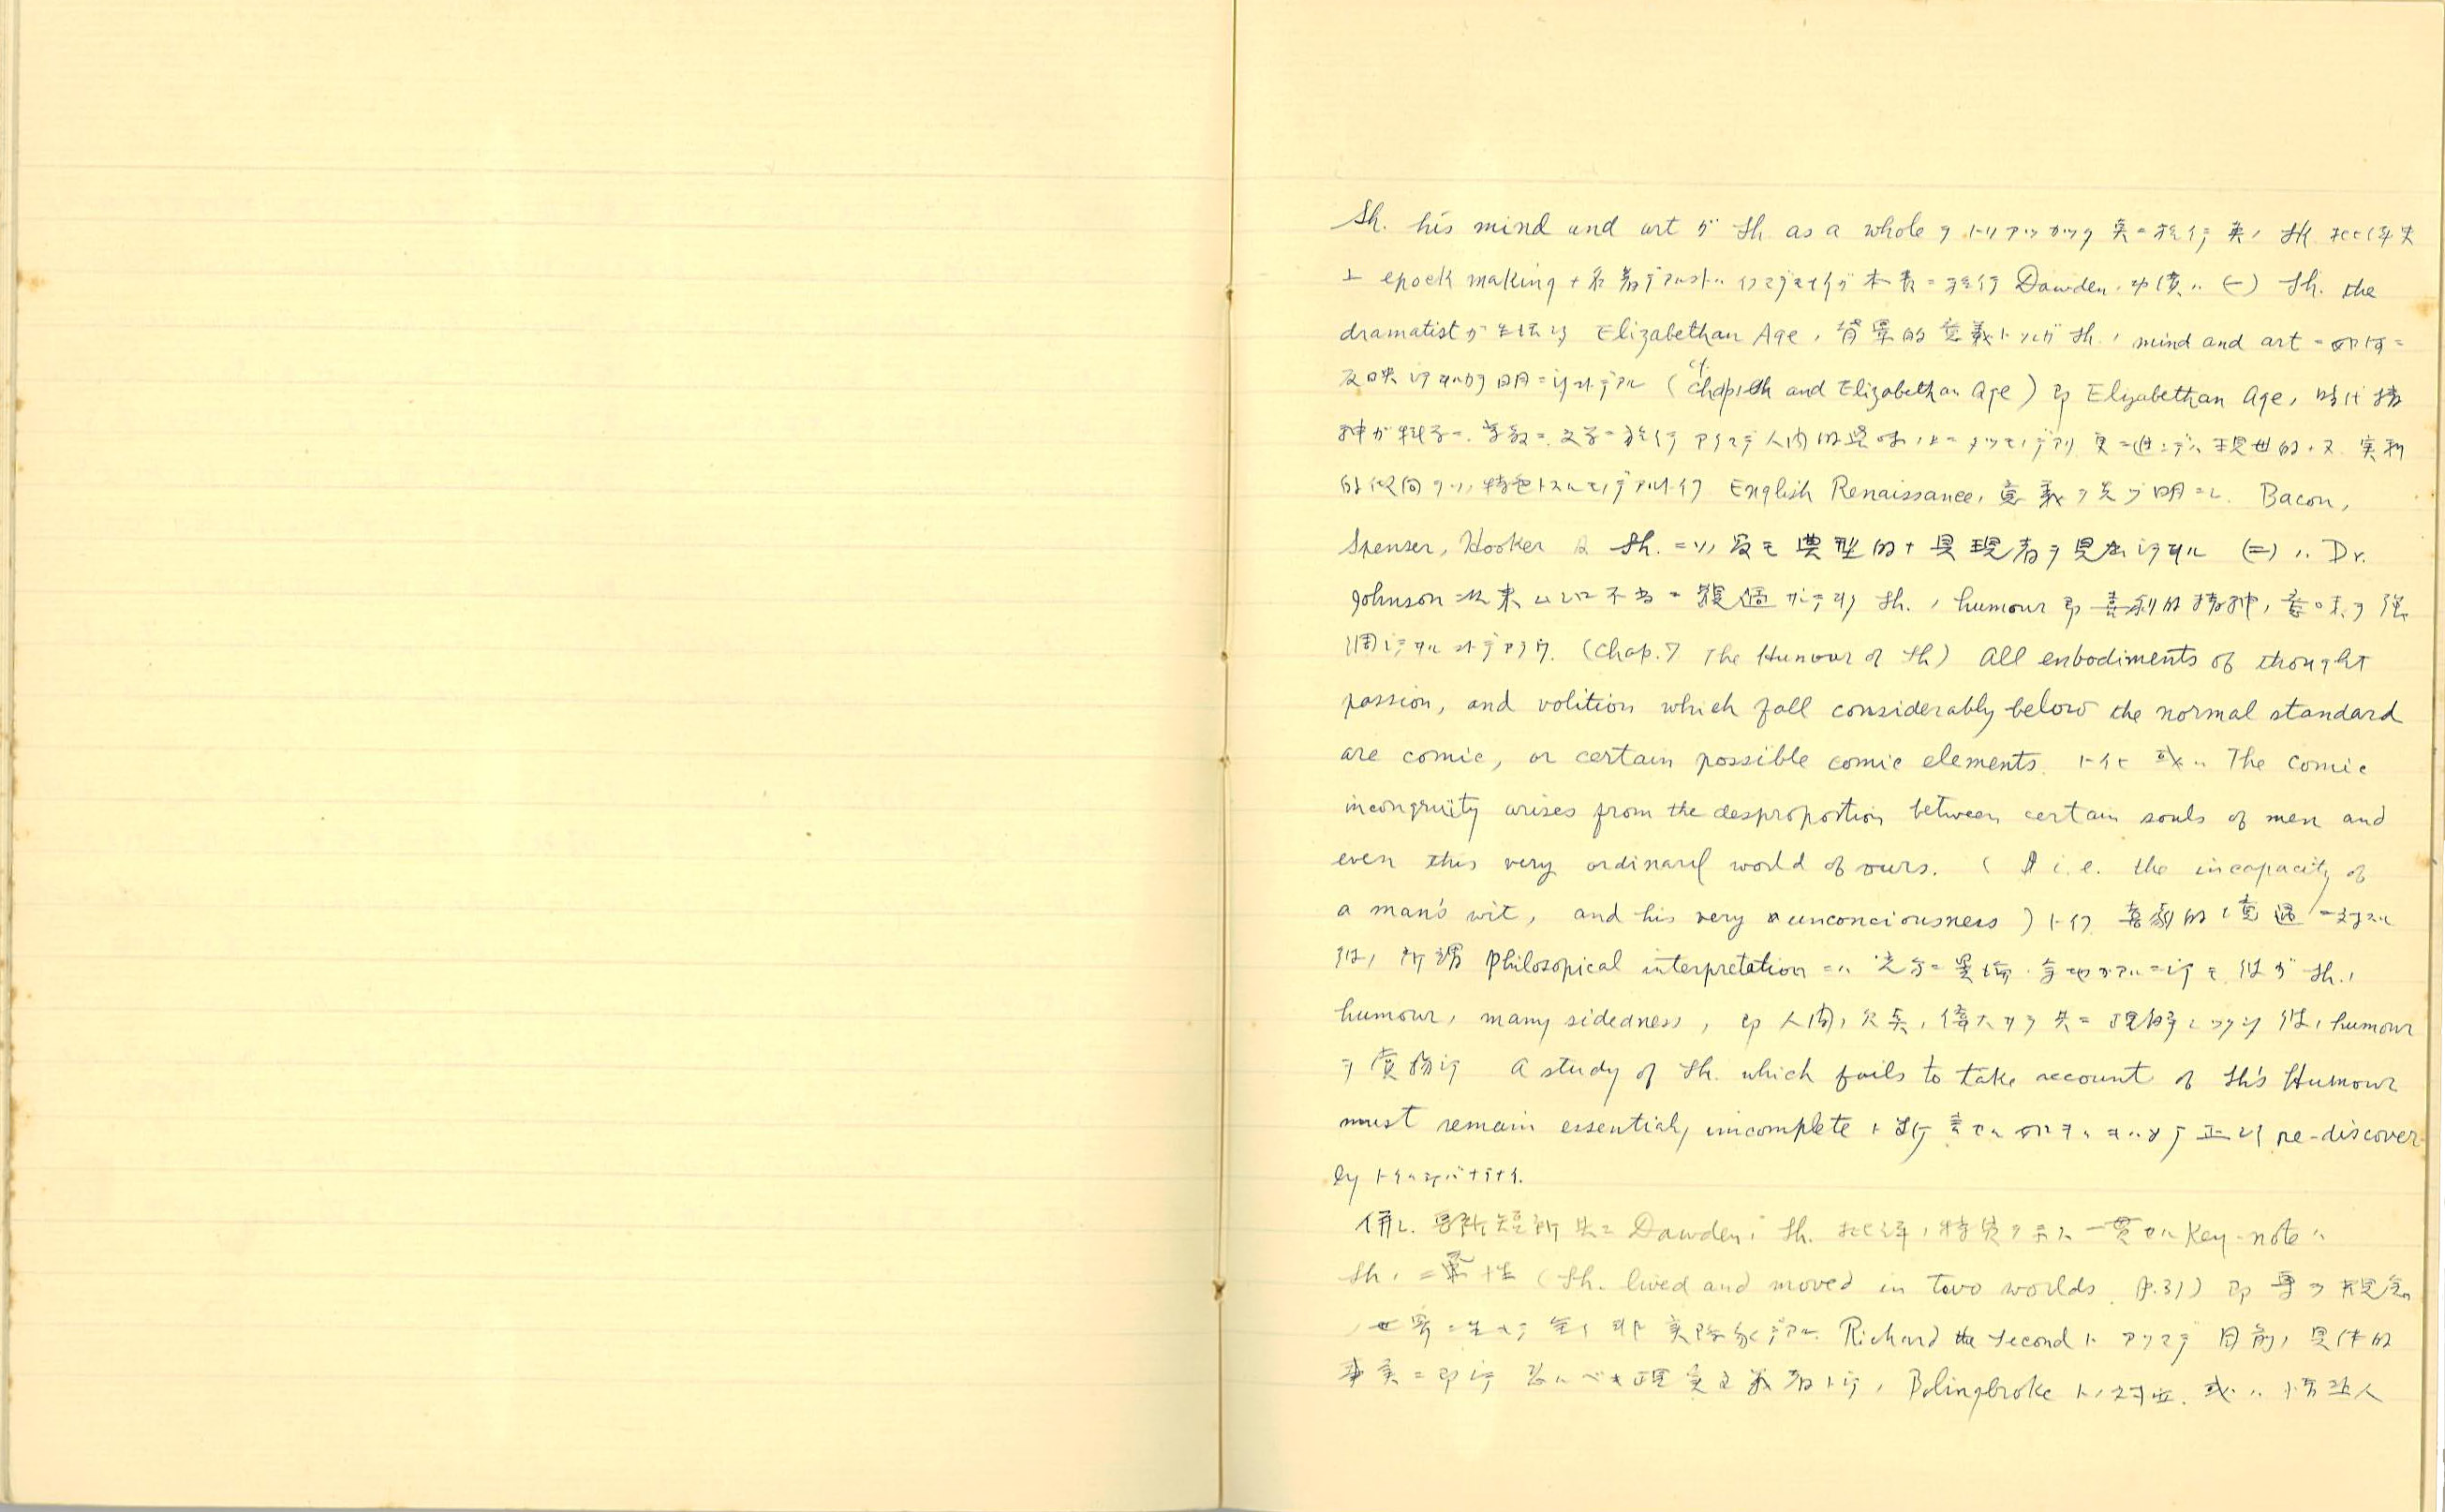 Sh. his mind and art ガ Sh. as a whole ヲトリアツカツタ 英 Sh 批評史
上 epoch making ナ名著デアルコトハ 本書ニ於ケル Dawden ノ功績ハ (一) Sh. the
dramatist ガ生活シタ Elizabethan Age ノ背景的意義トソレガ Sh. ノ mind and art ニ如何ニ
反映シテヰルカヲ明ニシタ事デアル (cf. chap. 1 Sh and Elizabethan Age) 即 Elizabethan Age ノ時代精
神ガ科学ニ、宗教ニ、文学ニ於ケル 人間的興味ノ上ニタツモノデアリ 更ニ進ンデハ現世的ナ又実利
的傾向ヲソノ特色トスルモノデアルト云フ English Renaissance ノ意義ヲ先ヅ明ニシ Bacon,
Spenser, Hooker 及 Sh. ニソノ最モ典型的ナ具現者ヲ見出シテヰル (二) ハ Dr.
Johnson 以来ムシロ不当ニ Sh. ノ humour 即喜劇的精神ノ意味ヲ強
調シテヰル事デアラウ. (Chap. 7 The Humour of Sh) All enbodiments of thought
passion, and volition which fall considerably below the normal standard
are comic, or certain possible comic elements. ト云ヒ或ハ The comic
incongruity arises from the desproportion between certain souls of men and
even this very ordinary world of ours. (i.e. the incapacity of
a man's wit, and his very unconciousness) ト云フ喜劇的境遇ニ対スル
彼ノ所謂 Philosopical interpretation ニハ充分ニ異論ノ余地ガアルニシテモ 彼ガ Sh. ノ
humour ノ many sidedness, 即人間ノ欠点ノ偉大サヲ共ニ理解シツヽアツタ彼ノ humour
ヲ賞揚シテ A study of Sh. which fails to take account of Sh's Humour
must remain essentialy imcomplete ト 正シク re-discover
ly トイハネバナラナイ.
併シ. 長所短所共ニ Dawden ノ Sh. 批評ノ特質ヲ示ス一貫セル Key-note ハ
Sh. ノ二重性 (Sh. lived and moved in two worlds. p.31) 即専ラ観念
ノ世界ニ生キテ全ク非実際家デアル Richard the Second ト 目前ノ具体的
事実ニ即シテ 現実主義者トシテノ Bolingbroke トノ対立. 或ハ情熱人